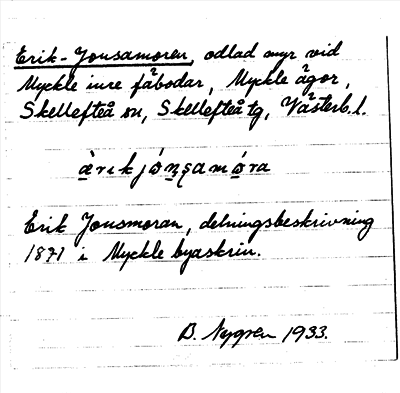 Erik-Jonsamoren, odlad myr vid
Myckle inre fäbodar, Myckle ägor,
Skellefteå sn, Skellefteå tg, Västerb. l.
Erik Jonsmoran, delningsbeskrivning
1871 i Myckle byaskrin.
B. Nygren 1933.